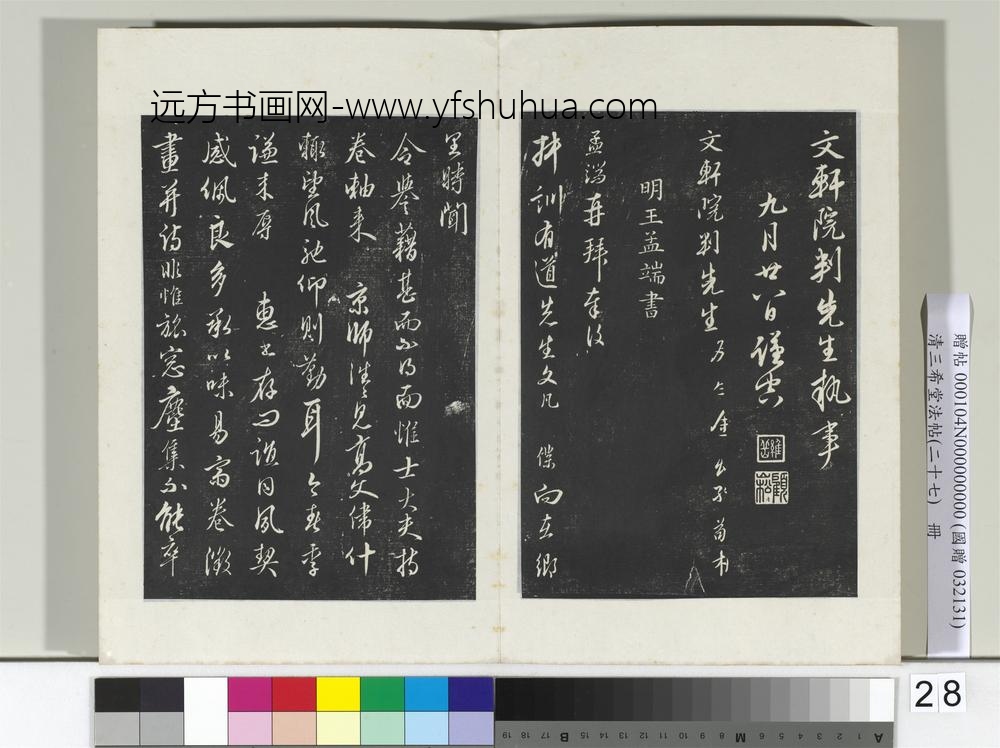 远方书画网-www.yfshuhua.com
文軒院判先生執事
九月廿八日謹空
文軒院判先生
明王孟端書
孟端再拜奉復
拜訓有道先生文几 僕向在鄉
里時聞
令譽藉甚而不得面惟士大夫持
卷軸來 京師得見高文偉什
輒望風馳仰則勤耳今春李
謙來辱 惠書存問誼同夙契
感佩良多承以味易齋卷徵
畫并詩非惟旅窓塵集不能卒
贈帖 000104N000000000 (國贈 032131)
清三希堂法帖(二十七) 冊
28
A 1 2 3 4 5 6 M 8 9 10 11 12 13 14 15 B 17 18 19